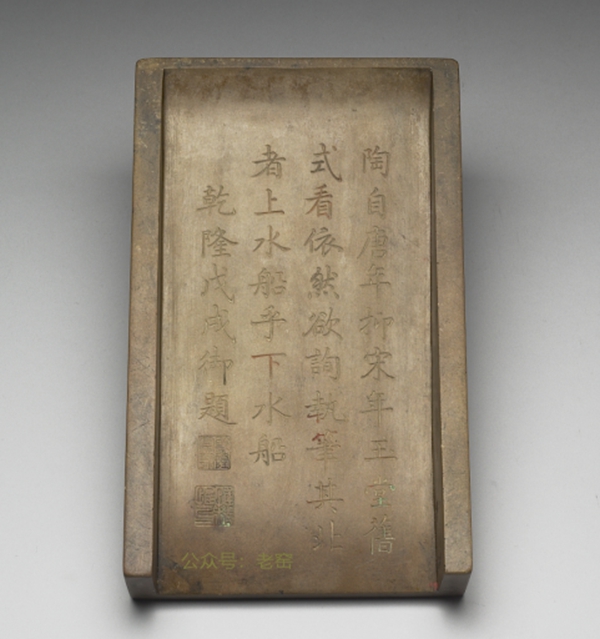 陶自唐年抑宋年玉堂舊
式看依然欲詢執筆其
者上水船乎下水船
乾隆戊戌御題
公众号：老窑